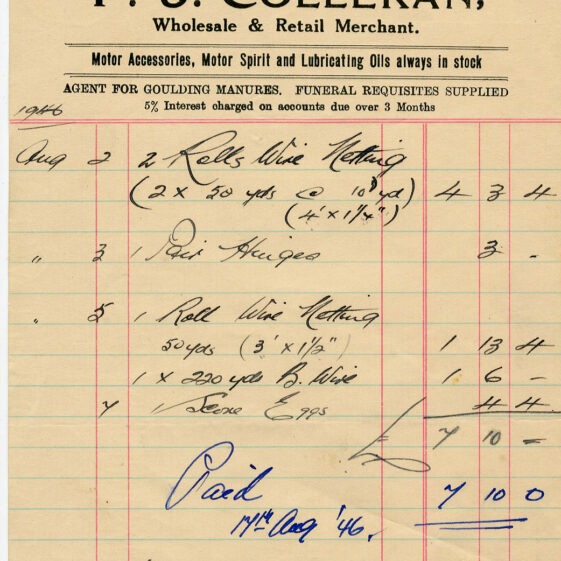 J. COLLERAN,
Wholesale & Retail Merchant.
Motor Accessories, Motor Spirit and Lubricating Oils always in stock
AGENT FOR GOULDING MANURES. FUNERAL REQUISITES SUPPLIED
5% Interest charged on accounts due over 3 Months
1946
Aug 2 2 Rolls Wire Netting
(2 x 50 yds @ 10d yd) 4 3 4
(4' x 1¼")
" 3 1 Pair Hinges 3 -
" 5 1 Roll Wire Netting
50 yds (3' x 1½") 1 13 4
1 x 220 yds B. Wire 1 6 -
7 1 Score Eggs 4 4
£ 7 10 -
Paid 7 10 0
17th Aug '46.